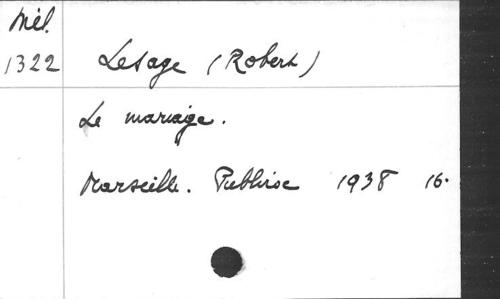 Mél.
1322 Lesage (Robert)
Le mariage.
Marseille. Publirse 1938 16.